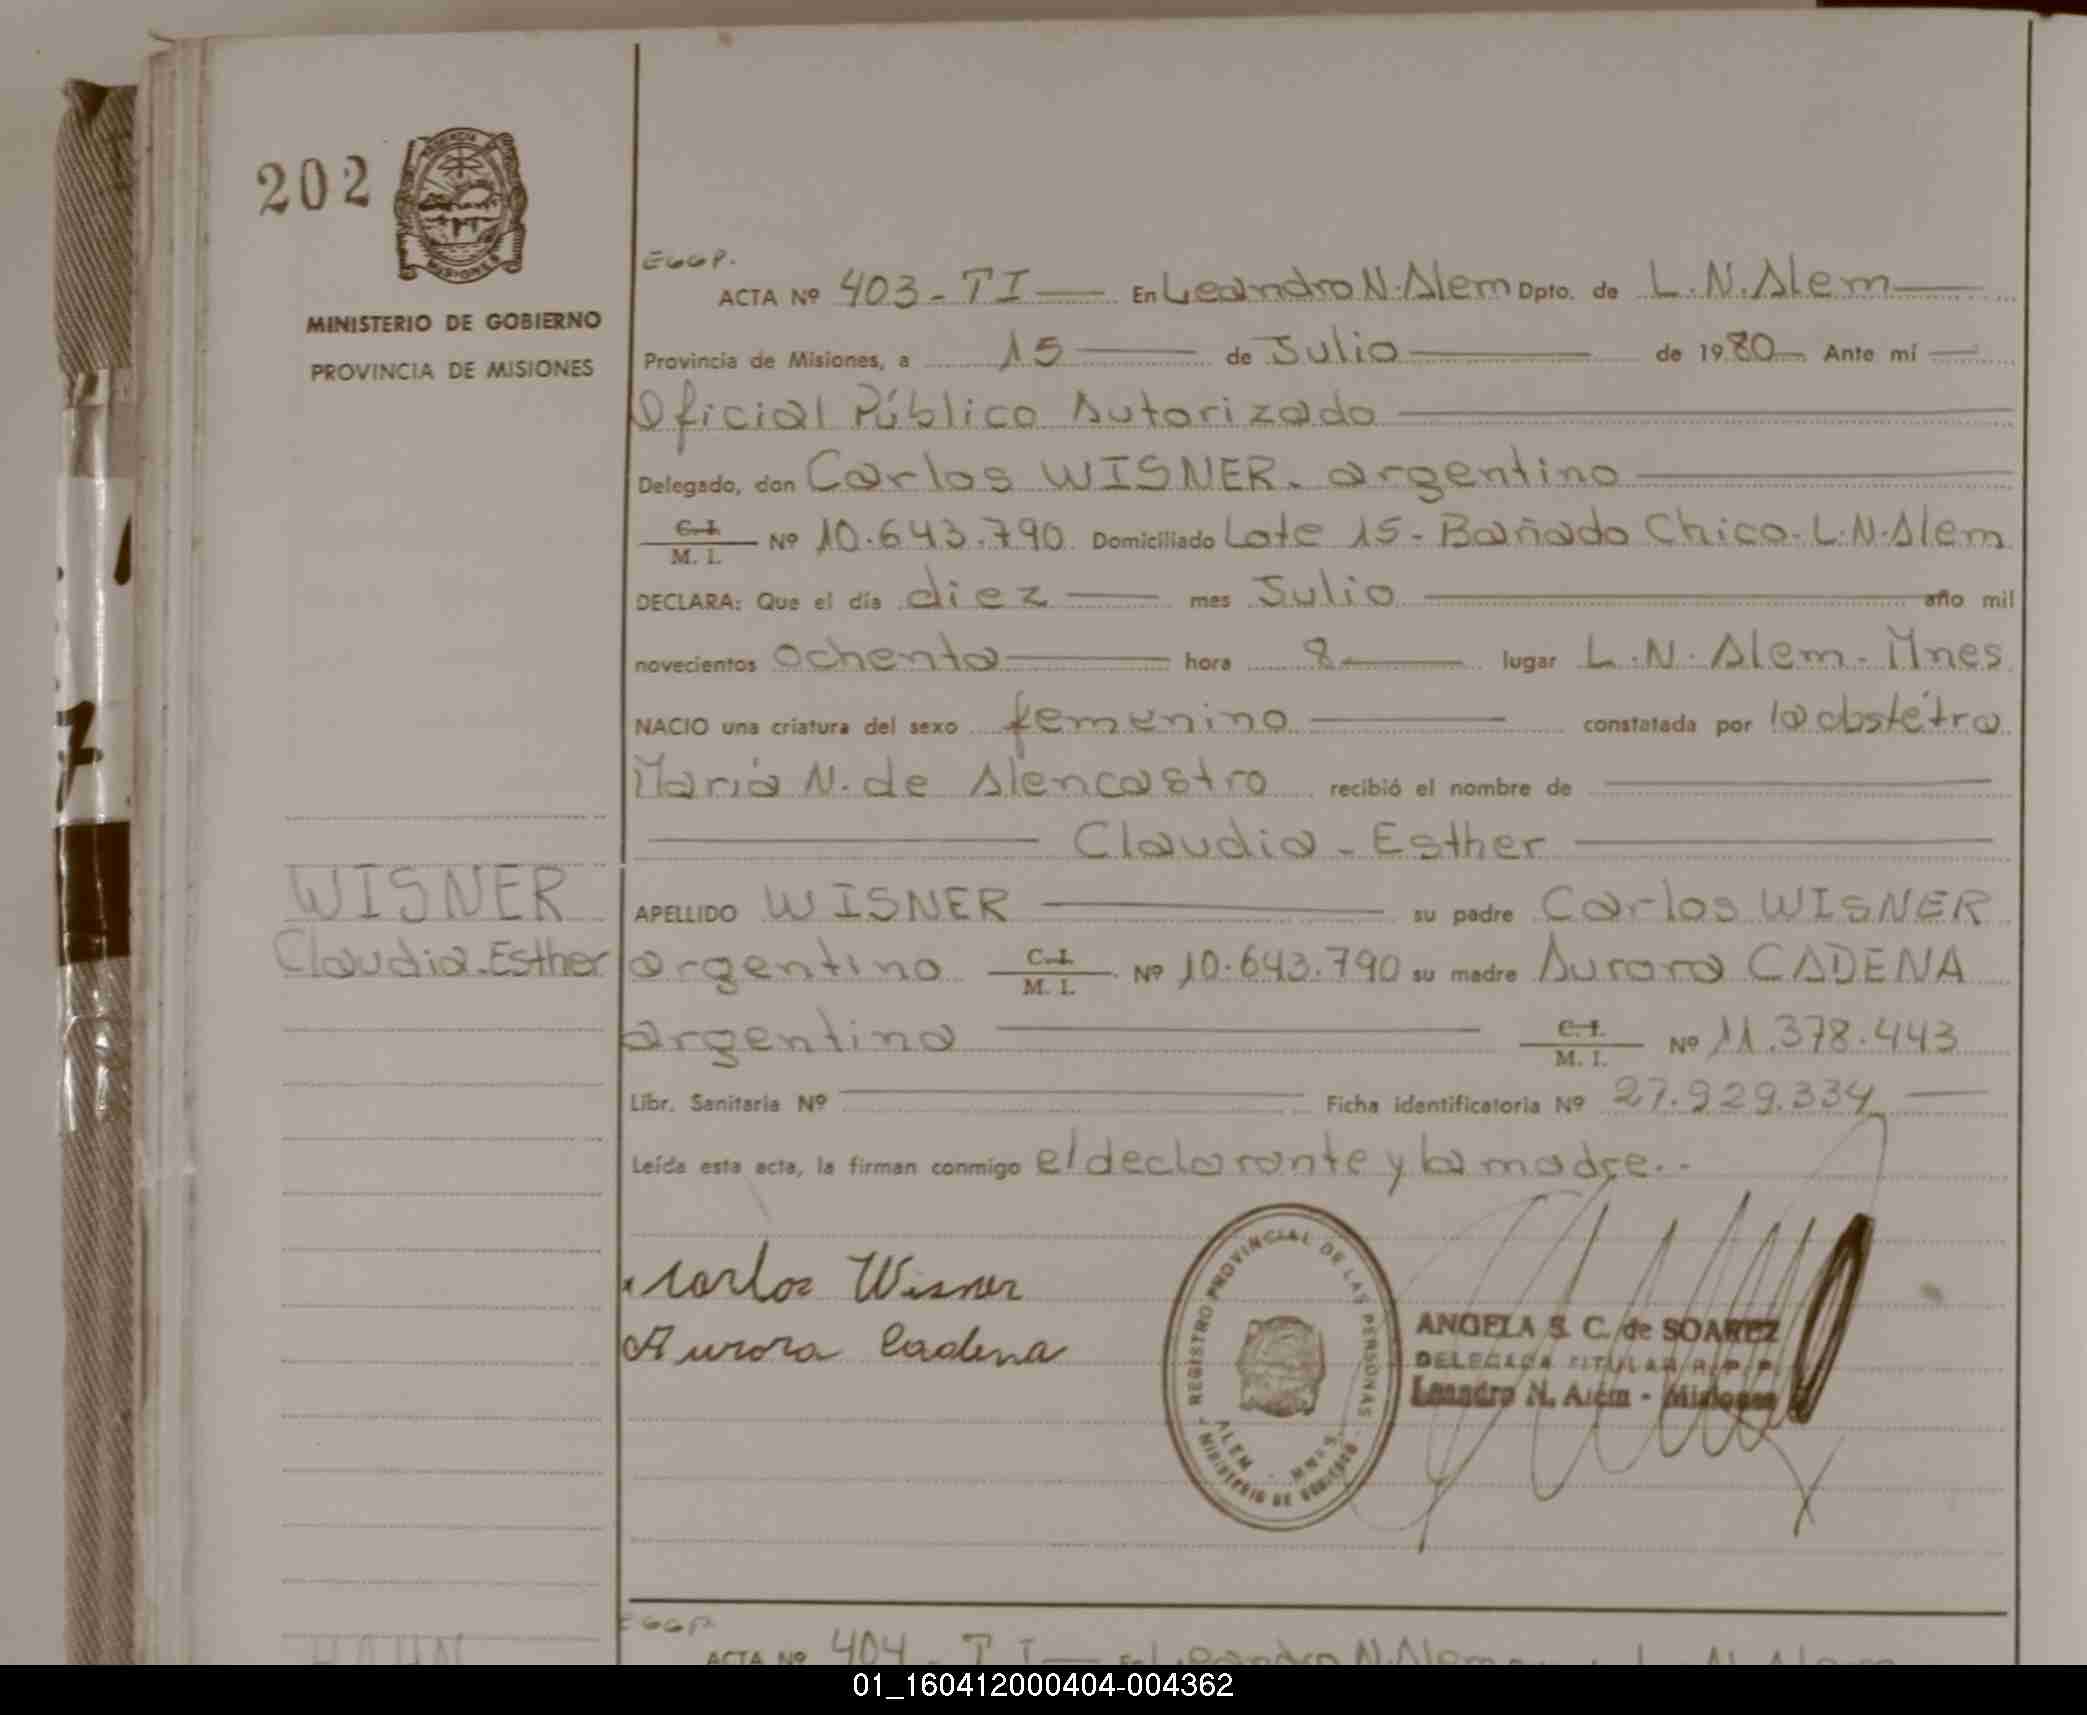 202
PROVINCIA
MISIONES
MINISTERIO DE GOBIERNO
PROVINCIA DE MISIONES
EGGP.
ACTA Nº 403 - TI En Leandro N. Alem Dpto. de L.N. Alem
Provincia de Misiones, a 15 de Julio de 1980 Ante mí
Oficial Público Autorizado
Delegado, don Carlos WISNER. argentino
C.I. M. I. Nº 10.643.790 Domiciliado Lote 15 - Bañado Chico - L.N. Alem
DECLARA: Que el día diez mes Julio año mil
novecientos ochenta hora 8 lugar L.N. Alem - Mnes
NACIO una criatura del sexo femenino constatada por la obstétra
María N. de Alencastro recibió el nombre de
Claudia - Esther
WISNER
Claudia - Esther
APELLIDO WISNER su padre Carlos WISNER
argentino C.I. M. I. Nº 10.643.790 su madre Aurora CADENA
argentina C.I. M. I. Nº 11.378.443
Libr. Sanitaria Nº Ficha identificatoria Nº 27.929.334
Leída esta acta, la firman conmigo el declarante y la madre. -
Carlos Wisner
Aurora Cadena
REGISTRO PROVINCIAL DE LAS PERSONAS
ALEM - MNES.
MINISTERIO DE GOBIERNO
ANGELA S. C. de SOAREZ
DELEGADA TITULAR R. P. P.
Leandro N. Alem - Misiones
EGGP
HAHN
ACTA Nº 404 - TI En Leandro N. Alem L. N. Alem
01_160412000404-004362